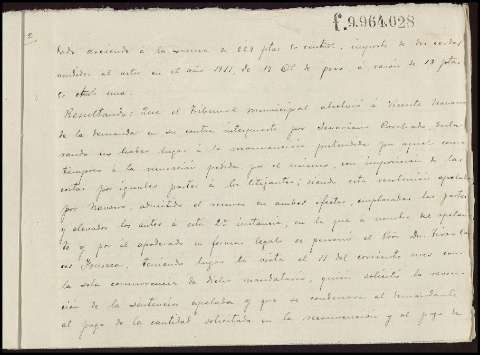 f.9.964.028
2
todo asciende á la suma de 229 ptas 50 centms, importe de dos cerdos
vendidos al actor en el año 1911, de 17 @ de peso á razón de 13 ptas
50 cts una.
Resultando: Que el Tribunal municipal absolvió á Vicente Navarro
de la demanda en su contra interpuesta por Feliciano, decla-
rando no haber lugar á la reconvención pretendida por aquel como
tampoco á la reversión pedida por el mismo, con imposición de las
costas por iguales partes á los litigantes; siendo esta resolución apelada
por Navarro, admitido el recurso en ambos efectos, emplazadas las partes
y elevados los autos á esta 2ª instancia, en la que á nombre del apelan-
te y por el apoderado en forma legal se personó el Pror Dn
Fonseca, teniendo lugar la vista el 11 del corriente mes con
la sola concurrencia de dicho mandatario, quien solicitó la revoca-
ción de la sentencia apelada y que se condenara al demandante
al pago de la cantidad solicitada en la reconvención y al pago de